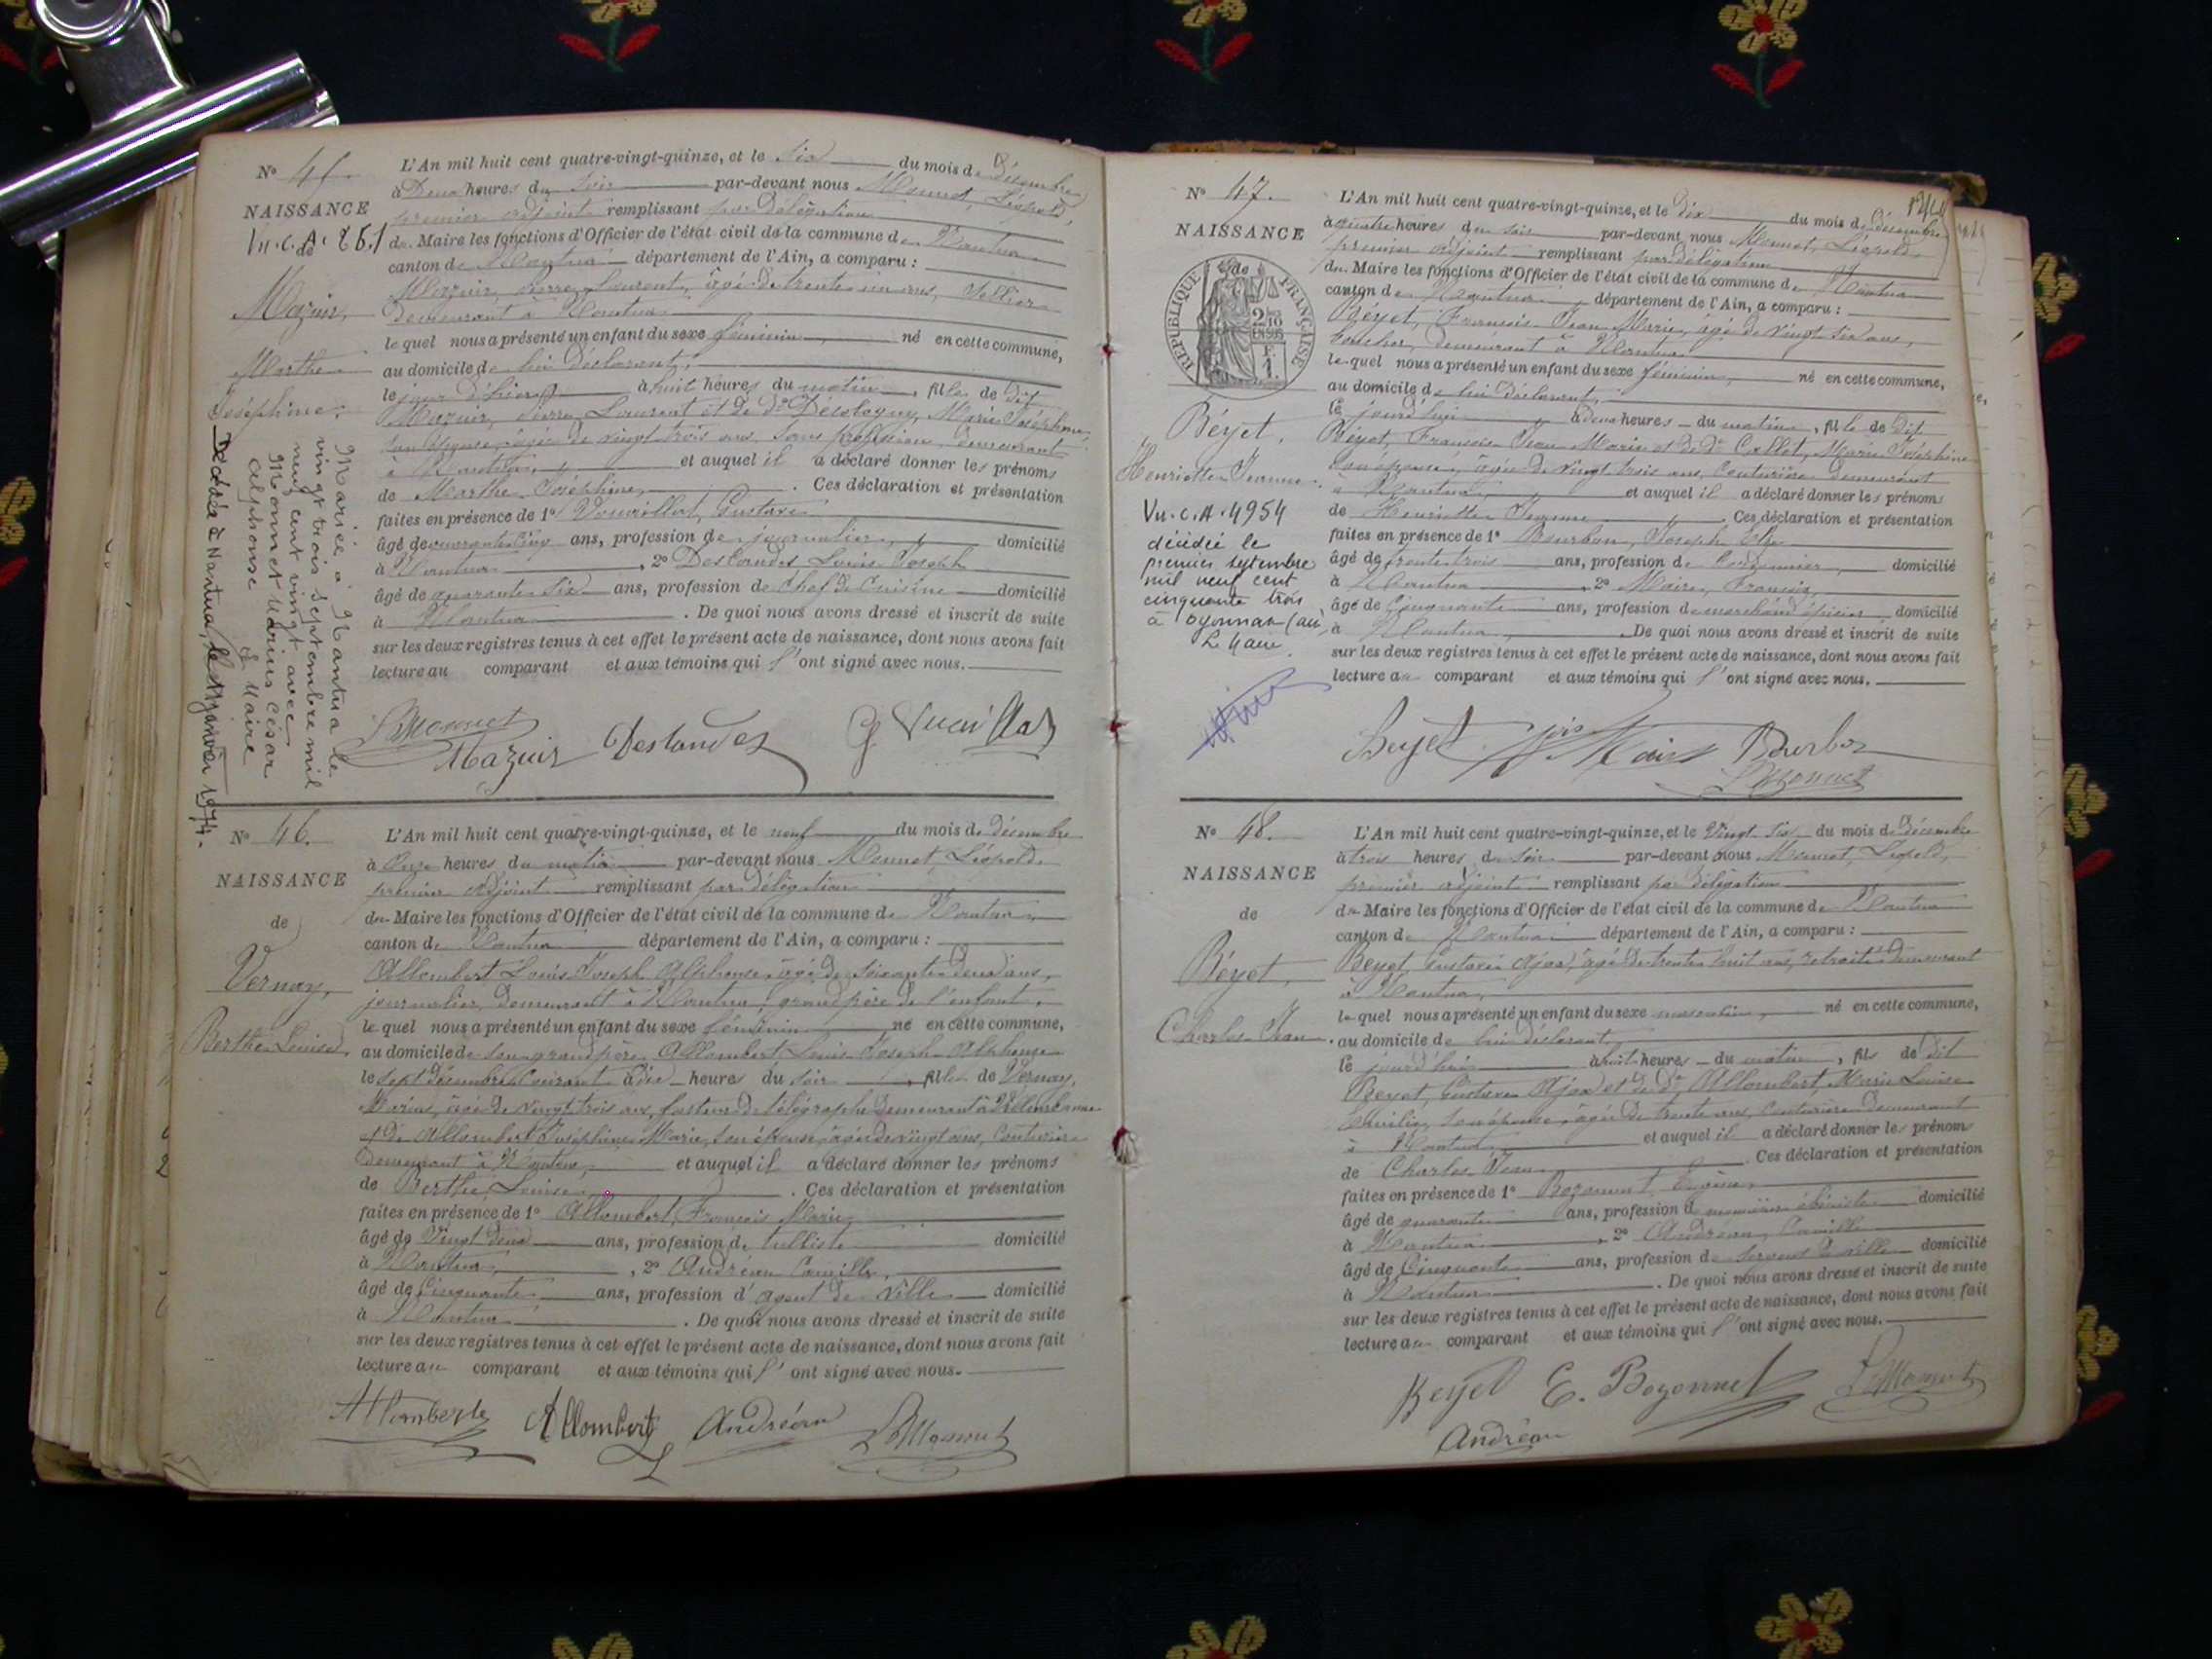 N° 45.
NAISSANCE
de
Vu. C. A. 251
Mazuir,
Marthe
Joséphine,
Mariée à Nantua le
vingt trois septembre mil
neuf cent vingt avec
Monnet Marius César
Alphonse
Le Maire
Décédée à Nantua, le janvier 1974.
L'An mil huit cent quatre-vingt-quinze, et le six du mois de Décembre
à Deux heures du soir par-devant nous Monnet, Léopold,
premier adjoint remplissant par délégation
du Maire les fonctions d'Officier de l'état civil de la commune de Nantua
canton de Nantua département de l'Ain, a comparu :
Mazuir, Pierre Laurent, âgé de trente un ans, Sellier
demeurant à Nantua
lequel nous a présenté un enfant du sexe féminin né en cette commune,
au domicile de lui déclarant,
le jour d'hier à huit heures du matin, fille de dit
Mazuir, Pierre Laurent et de De Marie Joséphine
son épouse, âgée de vingt trois ans, sans profession, demeurant
à Nantua, et auquel il a déclaré donner les prénoms
de Marthe Joséphine, . Ces déclaration et présentation
faites en présence de 1° Vuaillat, Gustave
âgé de quarante cinq ans, profession de journalier, domicilié
à Nantua , 2° Deslandes Louis Joseph
âgé de quarante six ans, profession de Chef de Cuisine domicilié
à Nantua . De quoi nous avons dressé et inscrit de suite
sur les deux registres tenus à cet effet le présent acte de naissance, dont nous avons fait
lecture au comparant et aux témoins qui l'ont signé avec nous.
L Monnet
Mazuir Deslandes G. Vuaillat
N° 46.
NAISSANCE
de
Vernay,
Berthe Louise,
L'An mil huit cent quatre-vingt-quinze, et le neuf du mois de décembre
à Onze heures du matin par-devant nous Monnet, Léopold,
premier adjoint remplissant par délégation
du Maire les fonctions d'Officier de l'état civil de la commune de Nantua
canton de Nantua département de l'Ain, a comparu :
Allombert Louis Joseph Alphonse, âgé de soixante deux ans,
journalier, demeurant à Nantua, grand père de l'enfant,
lequel nous a présenté un enfant du sexe féminin né en cette commune,
au domicile de son grand père Allombert Louis Joseph Alphonse
le sept décembre courant à dix heures du soir, fille de Vernay,
Marius, âgé de vingt trois ans, facteur de télégraphe demeurant à Villeurbanne
et de Allombert Joséphine Marie, son épouse, âgée de vingt ans, Couturière
demeurant à Nantua, et auquel il a déclaré donner les prénoms
de Berthe Louise, . Ces déclaration et présentation
faites en présence de 1° Allombert, François Marie
âgé de Vingt deux ans, profession de tulliste domicilié
à Nantua, , 2° Andréan Camille,
âgé de Cinquante ans, profession d'agent de ville domicilié
à Nantua . De quoi nous avons dressé et inscrit de suite
sur les deux registres tenus à cet effet le présent acte de naissance, dont nous avons fait
lecture au comparant et aux témoins qui l'ont signé avec nous.
Allombert Allombert Andréan L Monnet
N° 47.
NAISSANCE
de
RÉPUBLIQUE FRANÇAISE
2/10
EN SUS
1F.
Béyet,
Henriette Jeanne.
Vu. C. A. 4954
décédée le
premier septembre
mil neuf cent
cinquante trois
à Oyonnax (Ain)
Le Maire.
L'An mil huit cent quatre-vingt-quinze, et le dix du mois de Décembre
à quatre heures du soir par-devant nous Monnet, Léopold
premier adjoint remplissant par délégation
du Maire les fonctions d'Officier de l'état civil de la commune de Nantua
canton de Nantua département de l'Ain, a comparu :
Béyet, François Jean Marie, âgé de vingt six ans,
boucher, demeurant à Nantua
lequel nous a présenté un enfant du sexe féminin, né en cette commune,
au domicile de lui déclarant,
le jourd'hui à deux heures du matin, fille de dit
Béyet, François Jean Marie et de De Collet, Marie Joséphine
son épouse, âgée de vingt trois ans, Couturière demeurant
à Nantua, et auquel il a déclaré donner les prénoms
de Henriette Jeanne . Ces déclaration et présentation
faites en présence de 1° Bourbon, Joseph
âgé de trente trois ans, profession de Cordonnier, domicilié
à Nantua , 2° Maire, François,
âgé de Cinquante ans, profession de marchand épicier, domicilié
à Nantua, . De quoi nous avons dressé et inscrit de suite
sur les deux registres tenus à cet effet le présent acte de naissance, dont nous avons fait
lecture au comparant et aux témoins qui l'ont signé avec nous.
Beyet Maire Bourbon
L Monnet
N° 48.
NAISSANCE
de
Béyet,
Charles Jean.
L'An mil huit cent quatre-vingt-quinze, et le Vingt six du mois de Décembre
à trois heures du soir par-devant nous Monnet, Léopold,
premier adjoint remplissant par délégation
du Maire les fonctions d'Officier de l'état civil de la commune de Nantua
canton de Nantua département de l'Ain, a comparu :
Beyet, Gustave Ajax, âgé de trente huit ans, retraité demeurant
à Nantua,
lequel nous a présenté un enfant du sexe masculin, né en cette commune,
au domicile de lui déclarant,
le jourd'hui à huit heures du matin, fils de dit
Beyet, Gustave Ajax et de De Allombert, Marie Louise
Emilie, son épouse, âgée de trente ans, Couturière demeurant
à Nantua et auquel il a déclaré donner les prénoms
de Charles Jean . Ces déclaration et présentation
faites en présence de 1° Bozonnet, Eugène,
âgé de quarante ans, profession de menuisier ébéniste domicilié
à Nantua , 2° Andréan, Camille
âgé de Cinquante ans, profession de sergent de ville domicilié
à Nantua . De quoi nous avons dressé et inscrit de suite
sur les deux registres tenus à cet effet le présent acte de naissance, dont nous avons fait
lecture au comparant et aux témoins qui l'ont signé avec nous.
Beyet E. Bozonnet L Monnet
Andréan